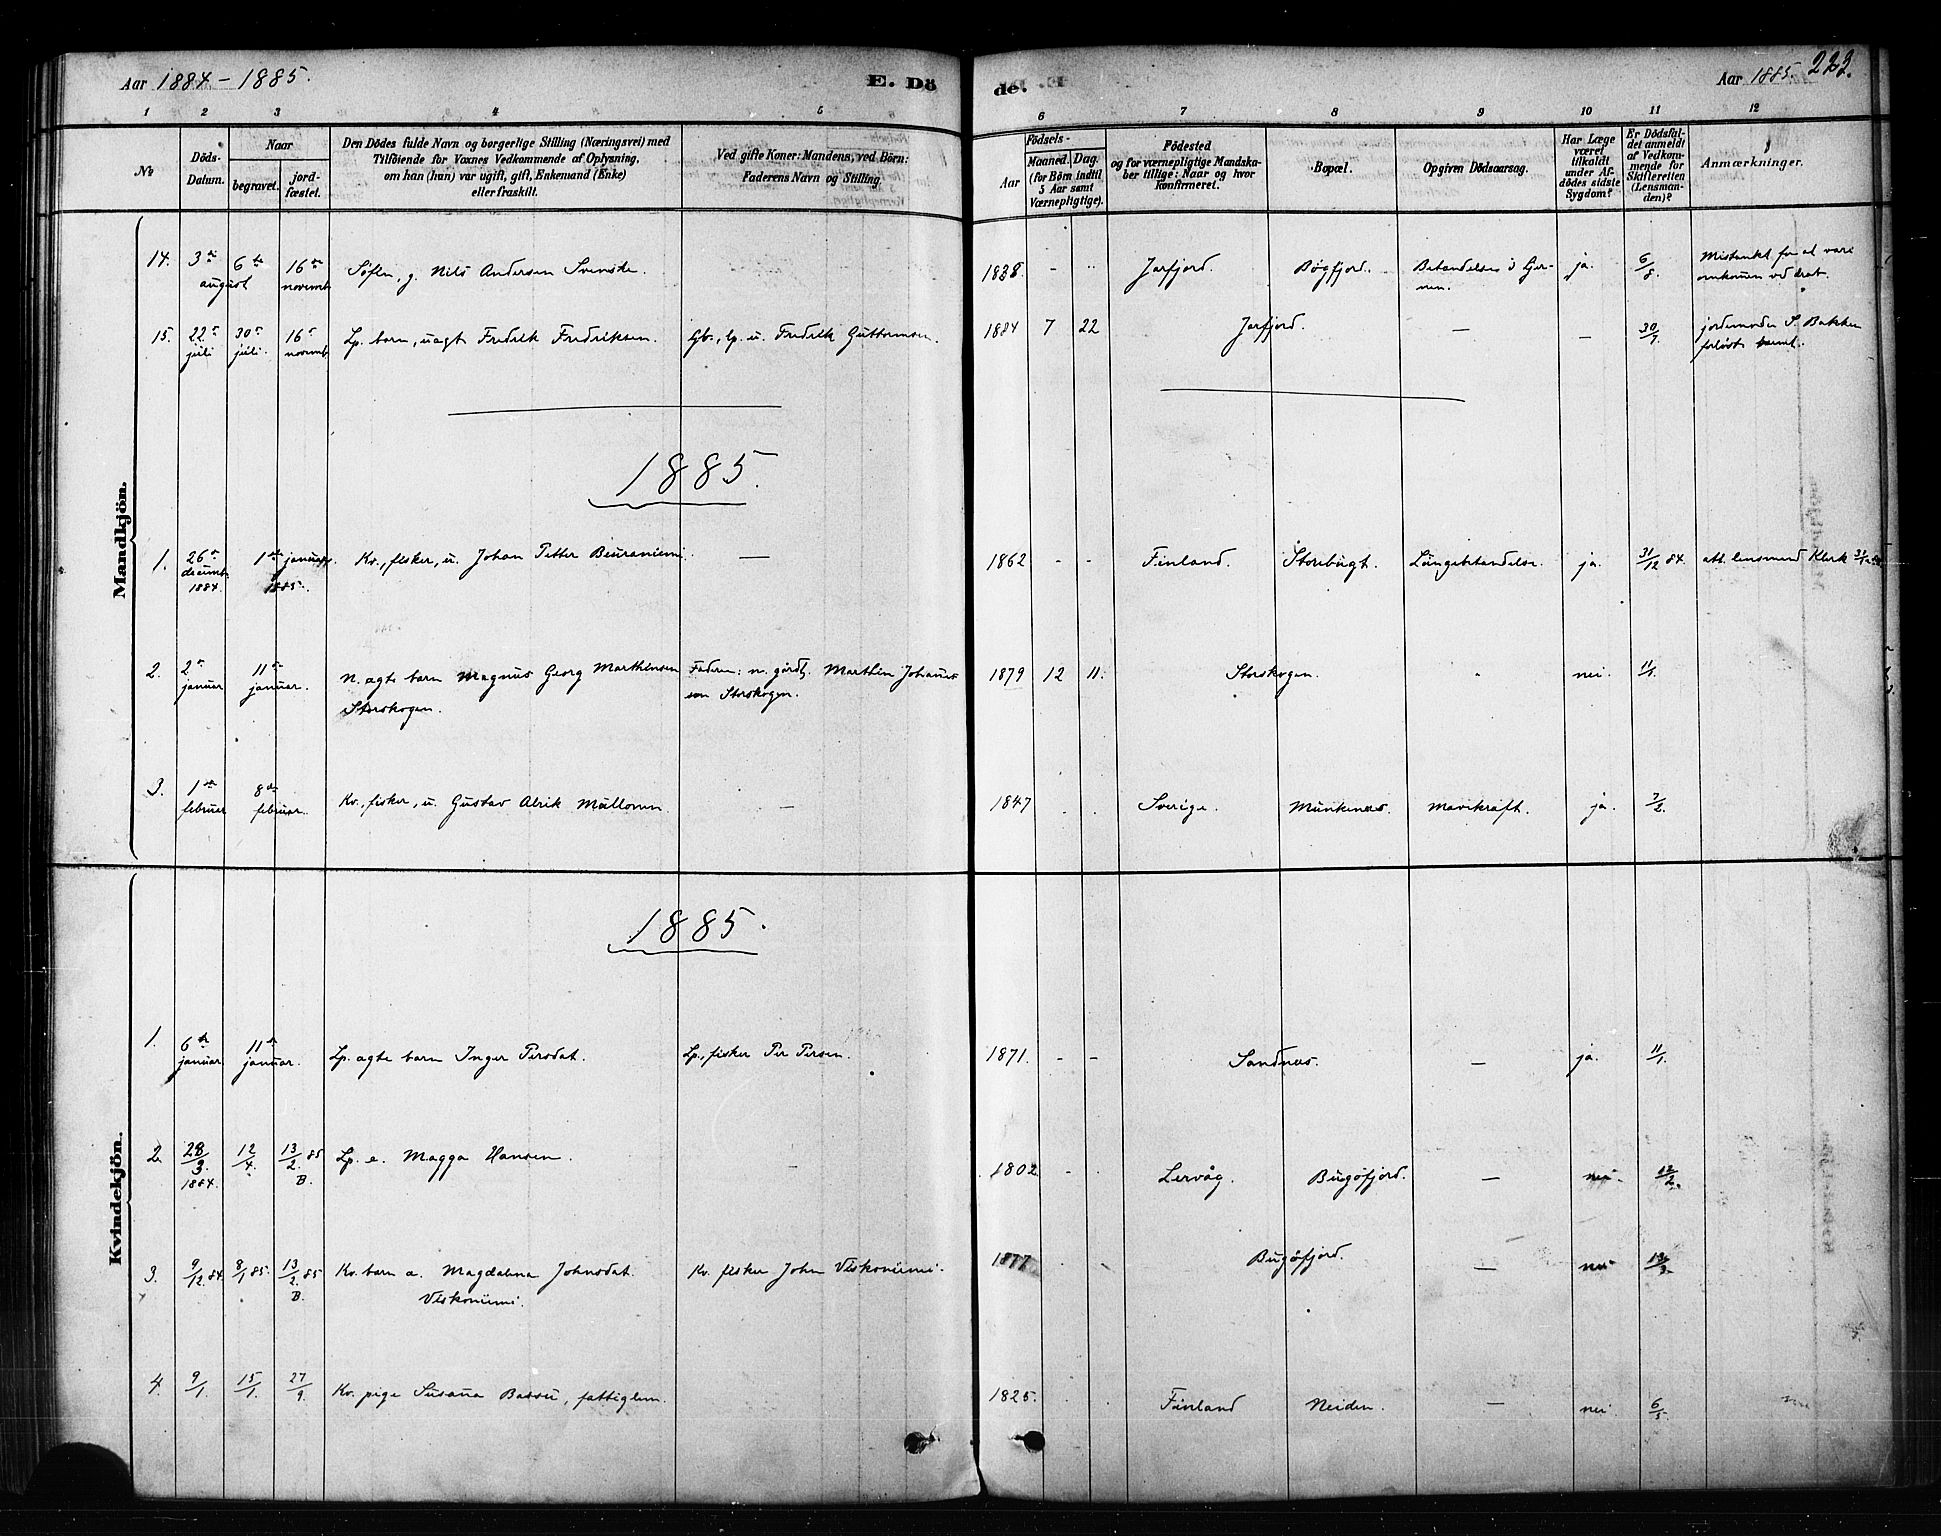 Aar 1884 - 1885.
E. Dö
de.
Aar 1885. 222.
1 2 3 4 5 6 7 8 9 10 11 12
No
Döds-
Datum.
Naar
begravet.
jord-
fæstet.
Den Dödes fulde Navn og borgerlige Stilling (Næringsvei) med
Tilföiende for Voxnes Vedkommende af Oplysning,
om han (hun) var ugift, gift, Enkemand (Enke)
eller fraskilt.
Ved gifte Koner: Mandens, ved Börn:
Faderens Navn og Stilling
Födsels-
Aar
Maaned. Dag.
(for Börn indtil
5 Aar samt
Værnepligtige).
Födested
og for værnepligtige Mandska-
ber tillige: Naar og hvor
konfirmeret.
Bopæl.
Opgiven Dödsaarsag.
Har Læge
været
tilkaldt
under Af-
dödes sidste
Sygdom?
Er Dödsfal-
det anmeldt
af Vedkom-
mende for
Skifteretten
(Lensman-
den)?
Anmærkninger.
Mandkjön.
14. 3die august 6te 16de novemb. Nils Andersen Svenske. 1838 - Jarfjord. Bøgfjord. ja. 6/8
15. 22de juli 30te juli. 16de novemb. Lp. barn, uægte Fredrik Fredriksen. Gbr., lp. u. Fredrik Guttormsen. 1884 7 22 Jarfjord. — — 30/7 jordemoder S. Bakken
forløste barnet.
1885.
1. 26de decemb. 1884. 1ste januar 1885. Kv., fisker, u. Johan Petter Beuraniemi. — 1862 - - Finland. Storebugt. Lungebetændelse. ja. 31/12 84. att. lensmand Klerk
2. 2den januar 11te januar. N. ægte barn Magnus Georg Marthinsen
Storskogen.
Faderen: n. gårdbr. Marthin Johannes-
sen Storskogen.
1879 12 11. Storskogen. nei. 11/1.
3. 1ste februar 8de februar. Kv., fisker, u. Gustav Alrik Mülloren. — 1847 Sverige. Munkenæs. Mavekræft. ja. 7/2.
Kvindekjön.
1885.
1. 6te januar 11te januar. Lp. ægte barn Inger Persdat. Lp., fisker Per Persen. 1871. - - Sandnæs. — ja. 11/1.
2. 28/3. 1884. 12/4. 13/2 85 B. Lp. e. Magga Hansen. — 1802 Lervåg. Bugøfjord. — nei. 13/2.
3. 9/12 84 8/1 85. 13/2 85 B. Kv. barn a. Magdalena Johnsdat.
Veskoniemi.
Kv. fisker John Veskoniemi. 1877 Bugøfjord. — nei
4. 9/1. 15/1. 27/9. Kv. pige Susana Bassu, fattiglem. 1825. Finland Neiden. — nei.